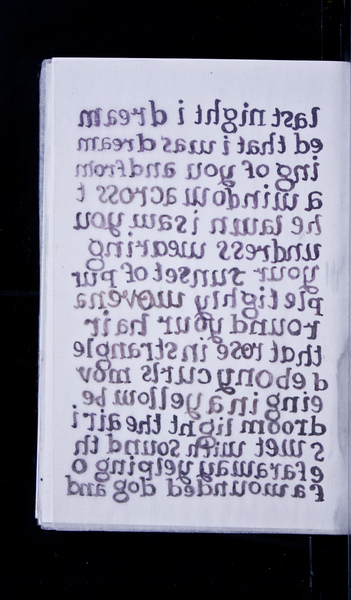 last night i dream
ed that i was dream
ing of you and from
a window across t
he lawn i saw you
undress wearing
your sunset of pur
ple tightly woven a
round your hair
that rose in strangle
d ebony curls mov
eing in a yellow be
droom light the air i
s wet with sound th
e faraway yelping o
f a wounded dog and